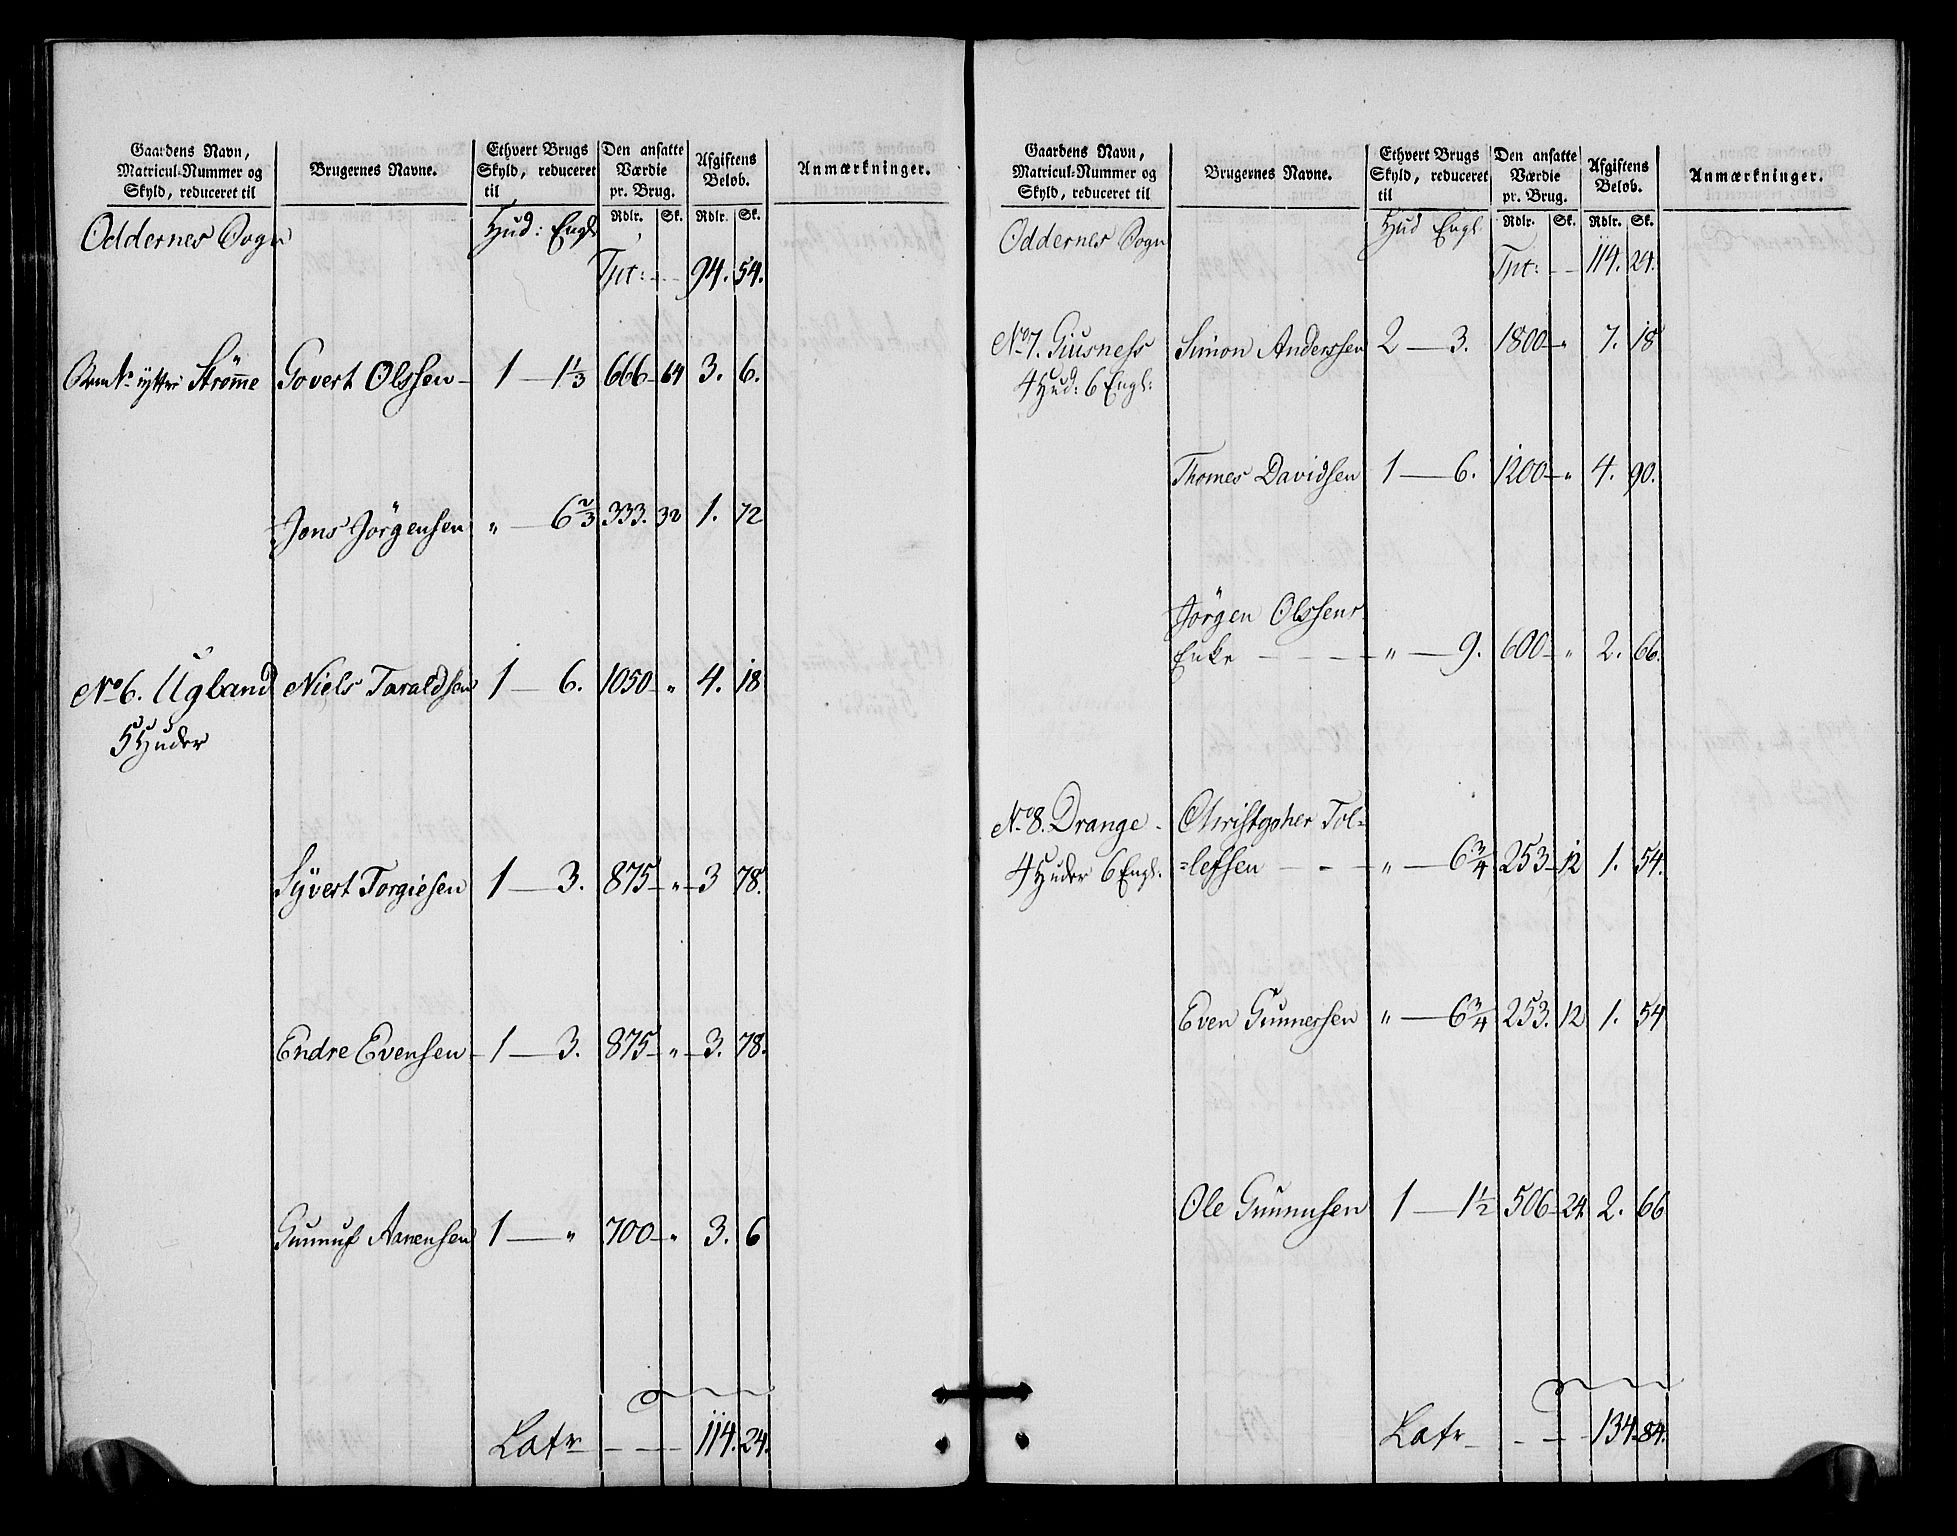 Gaardens Navn, Matricul-Nummer og Skyld, reduceret til | Brugernes Navne. | Ethvert Brugs Skyld, reduceret til | Den ansatte Værdie pr. Brug. | Afgiftens Beløb. | Anmærkninger.
Rdlr. Sk. Rdlr. Sk.
Oddernes Sogn Hud: Engl
Tpt: — 94. 54.
ÿttre Strømme Govert Olssen 1 — 1 1/3 666 64 3. 6.
Jens Jörgensen " — 6 2/3 333. 32 1. 72
No 6. Ugland Niels Taraldsen 1 — 6. 1050 " 4. 18
5 Huder
Syvert Torgiesen 1 — 3. 875 " 3 78.
Endre Evensen 1 — 3. 875 " 3. 78.
Gunnuf Aanensen 1 — " 700 " 3. 6
Latr — 114. 24.
Gaardens Navn, Matricul-Nummer og Skyld, reduceret til | Brugernes Navne. | Ethvert Brugs Skyld, reduceret til | Den ansatte Værdie pr. Brug. | Afgiftens Beløb. | Anmærkninger.
Rdlr. Sk. Rdlr. Sk.
Oddernes Sogn Hud Engl
Tpt: — 114. 24.
No 7. Giusness Simon Anderssen 2 — 3. 1800 " 7. 18
4 Hud: 6 Engl:
Thomes Davidsen 1 — 6. 1200 " 4. 90.
Jörgen Olssens
Enke — " — 9. 600 " 2. 66.
No 8. Drange Christopher Tol=
4 Huder 6 Engl. =lefsen — " — 6 3/4 253 12 1. 54.
Even Gunnersen " — 6 3/4 253. 12 1. 54
Ole Gunnusen 1 — 1 1/2 506 24 2. 66
Latr — 134. 84.